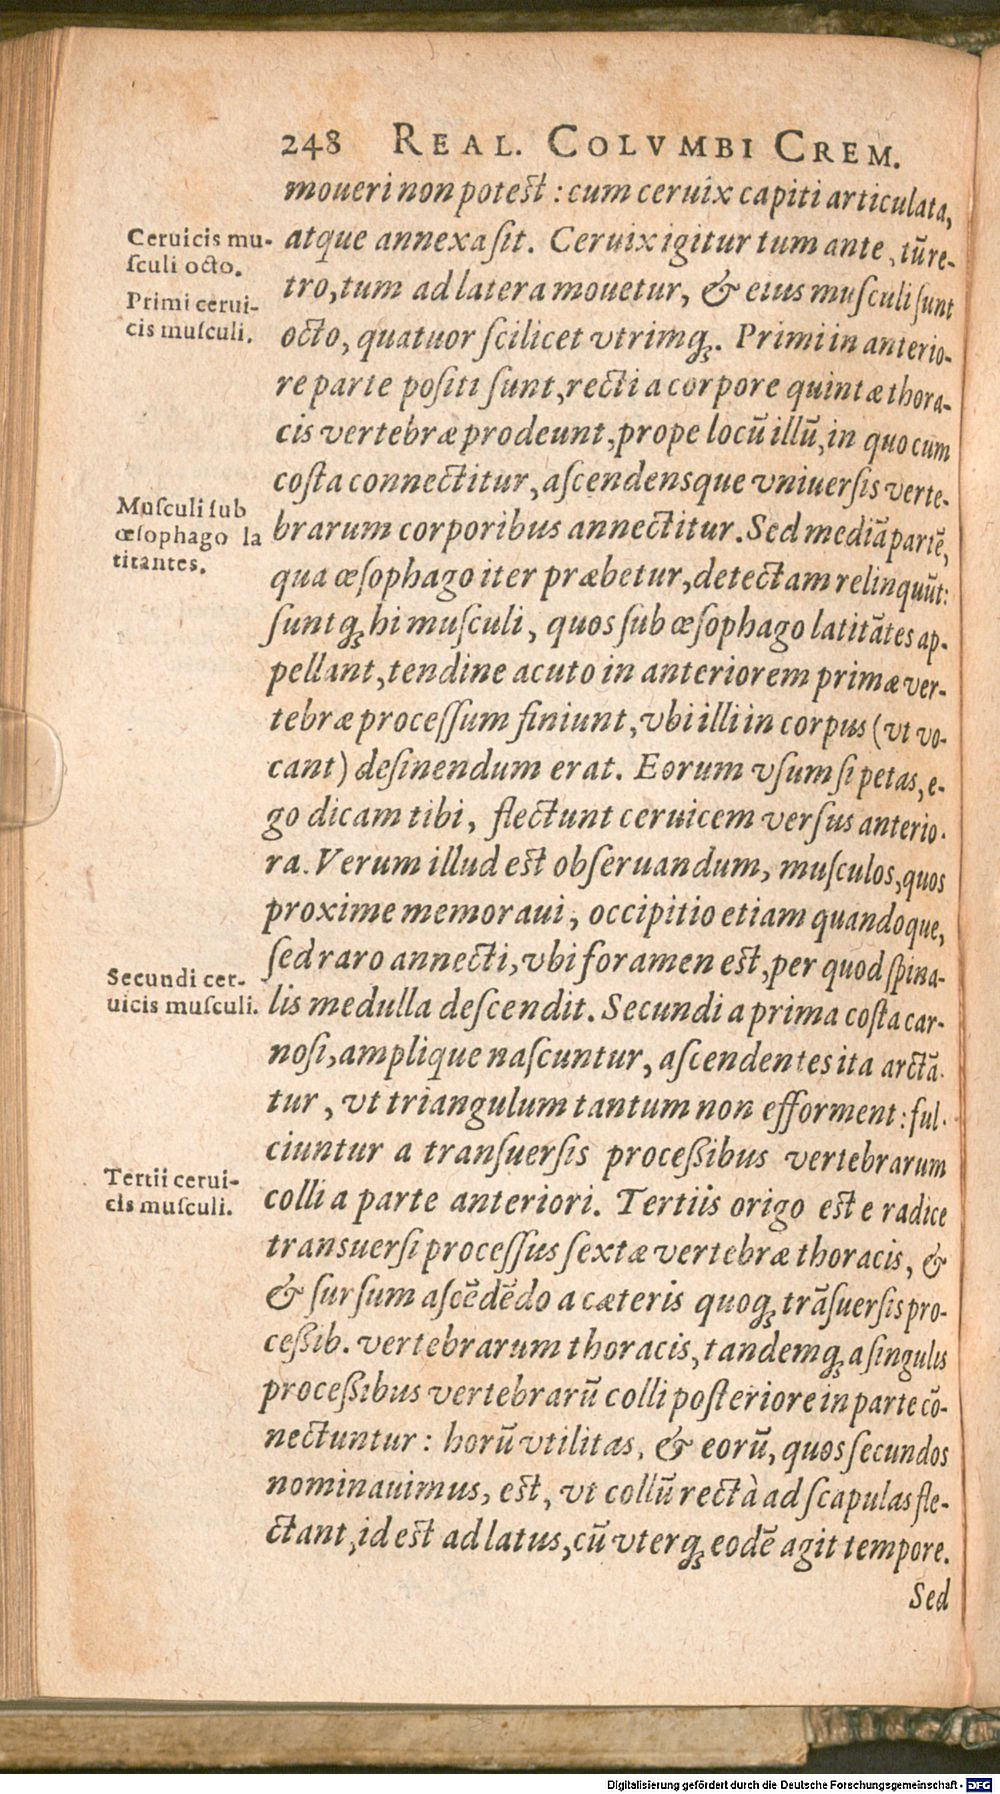 248 REAL. COLVMBI CREM.
moueri non poteſt : cum ceruix capiti articulata,
atque annexa ſit. Ceruix igitur tum ante, tũ re-
tro, tum ad latera mouetur, & eius muſculi ſunt
octo, quatuor ſcilicet vtrimq́;. Primi in anterio-
re parte poſiti ſunt, recti a corpore quintæ thora-
cis vertebræ prodeunt, prope locũ illũ, in quo cum
coſta connectitur, aſcendensque vniuerſis verte-
brarum corporibus annectitur. Sed mediã partẽ,
qua œſophago iter præbetur, detectam relinquũt:
ſuntq; hi muſculi, quos ſub œſophago latitãtes ap-
pellant, tendine acuto in anteriorem primæ ver-
tebræ proceſſum finiunt, vbi illi in corpus (vt vo-
cant) deſinendum erat. Eorum vſum ſi petas, e-
go dicam tibi, flectunt ceruicem verſus anterio-
ra. Verum illud eſt obſeruandum, muſculos, quos
proxime memoraui, occipitio etiam quandoque,
ſed raro annecti, vbi foramen eſt, per quod ſpina-
lis medulla deſcendit. Secundi a prima coſta car-
noſi, amplique naſcuntur, aſcendentes ita arctã-
tur, vt triangulum tantum non efforment : ful-
ciuntur a tranſuerſis proceßibus vertebrarum
colli a parte anteriori. Tertiis origo eſt e radice
transuerſi proceſſus ſextæ vertebræ thoracis, &
& ſurſum aſcẽdẽdo a cæteris quoq; trãſuerſis pro-
ceßib. vertebrarum thoracis, tandemq; a ſingulis
proceßibus vertebrarũ colli poſteriore in parte cõ-
nectuntur : horũ vtilitas, & eorũ, quos ſecundos
nominauimus, eſt, vt collũ rectà ad ſcapulas fle-
ctant, id eſt ad latus, cũ vterq; eodẽ agit tempore.
Sed
Ceruicis mu-
ſculi octo.
Primi cerui-
cis muſculi.
Muſculi ſub
œſophago la
titantes.
Secundi cer-
uicis muſculi.
Tertii cerui-
cis muſculi.
Digitalisierung gefördert durch die Deutsche Forschungsgemeinschaft - DFG